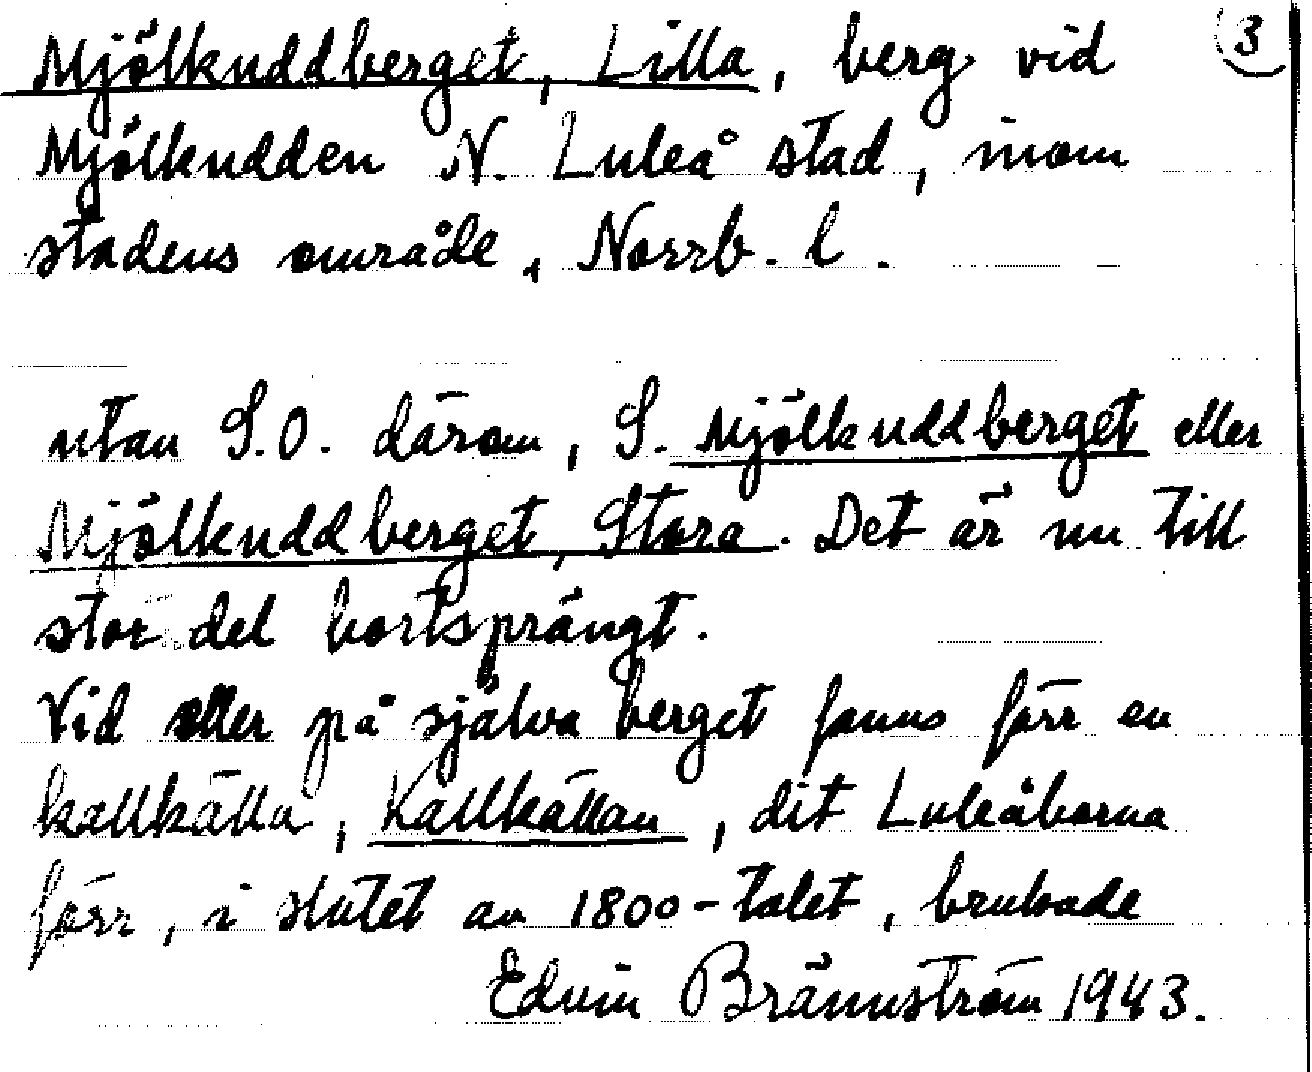 Mjölkuddberget, Lilla, berg vid (3
Mjölkudden N. Luleå stad, inom
stadens område, Norrb. l.
utan S.O. därom, S. Mjölkuddberget eller
Mjölkuddberget, Stora. Det är nu till
stor del bortsprängt.
Vid eller på själva berget fanns förr en
kallkälla, Kallkällan, dit Luleåborna
förr, i slutet av 1800-talet, brukade
Edvin Brännström 1943.